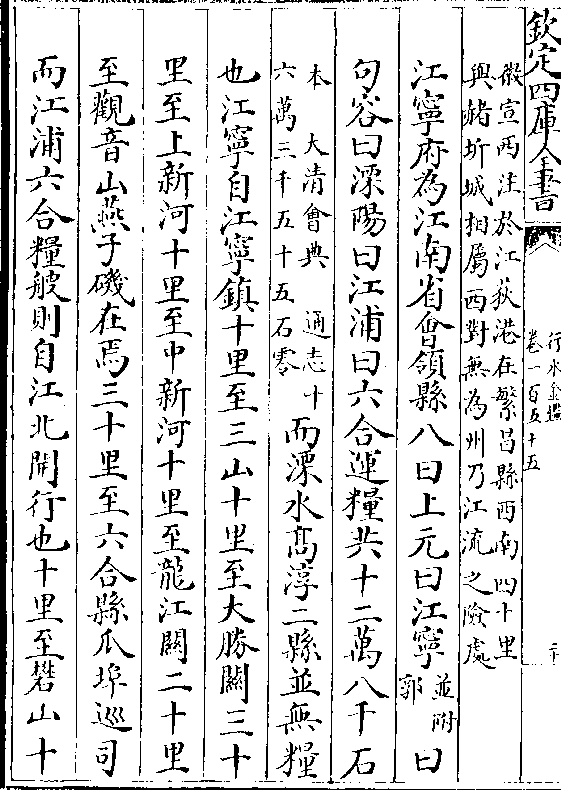 欽定四庫全書
行水金鑑
卷一百五十五
二十
徽宣西注於江荻港在繁昌縣西南四十里
與赭圻城相屬西對無為州乃江流之險處
江寧府為江南省會領縣八曰上元曰江寧
並附
郭
曰
句容曰溧陽曰江浦曰六合運糧共十二萬八千石
本 大清會典 通志十
六萬三千五十五石零
而溧水高淳二縣並無糧
也江寧自江寧鎮十里至三山十里至大勝關三十
里至上新河十里至中新河十里至龍江關二十里
至觀音山燕子磯在焉三十里至六合縣瓜埠巡司
而江浦六合糧艘則自江北開行也十里至礬山十